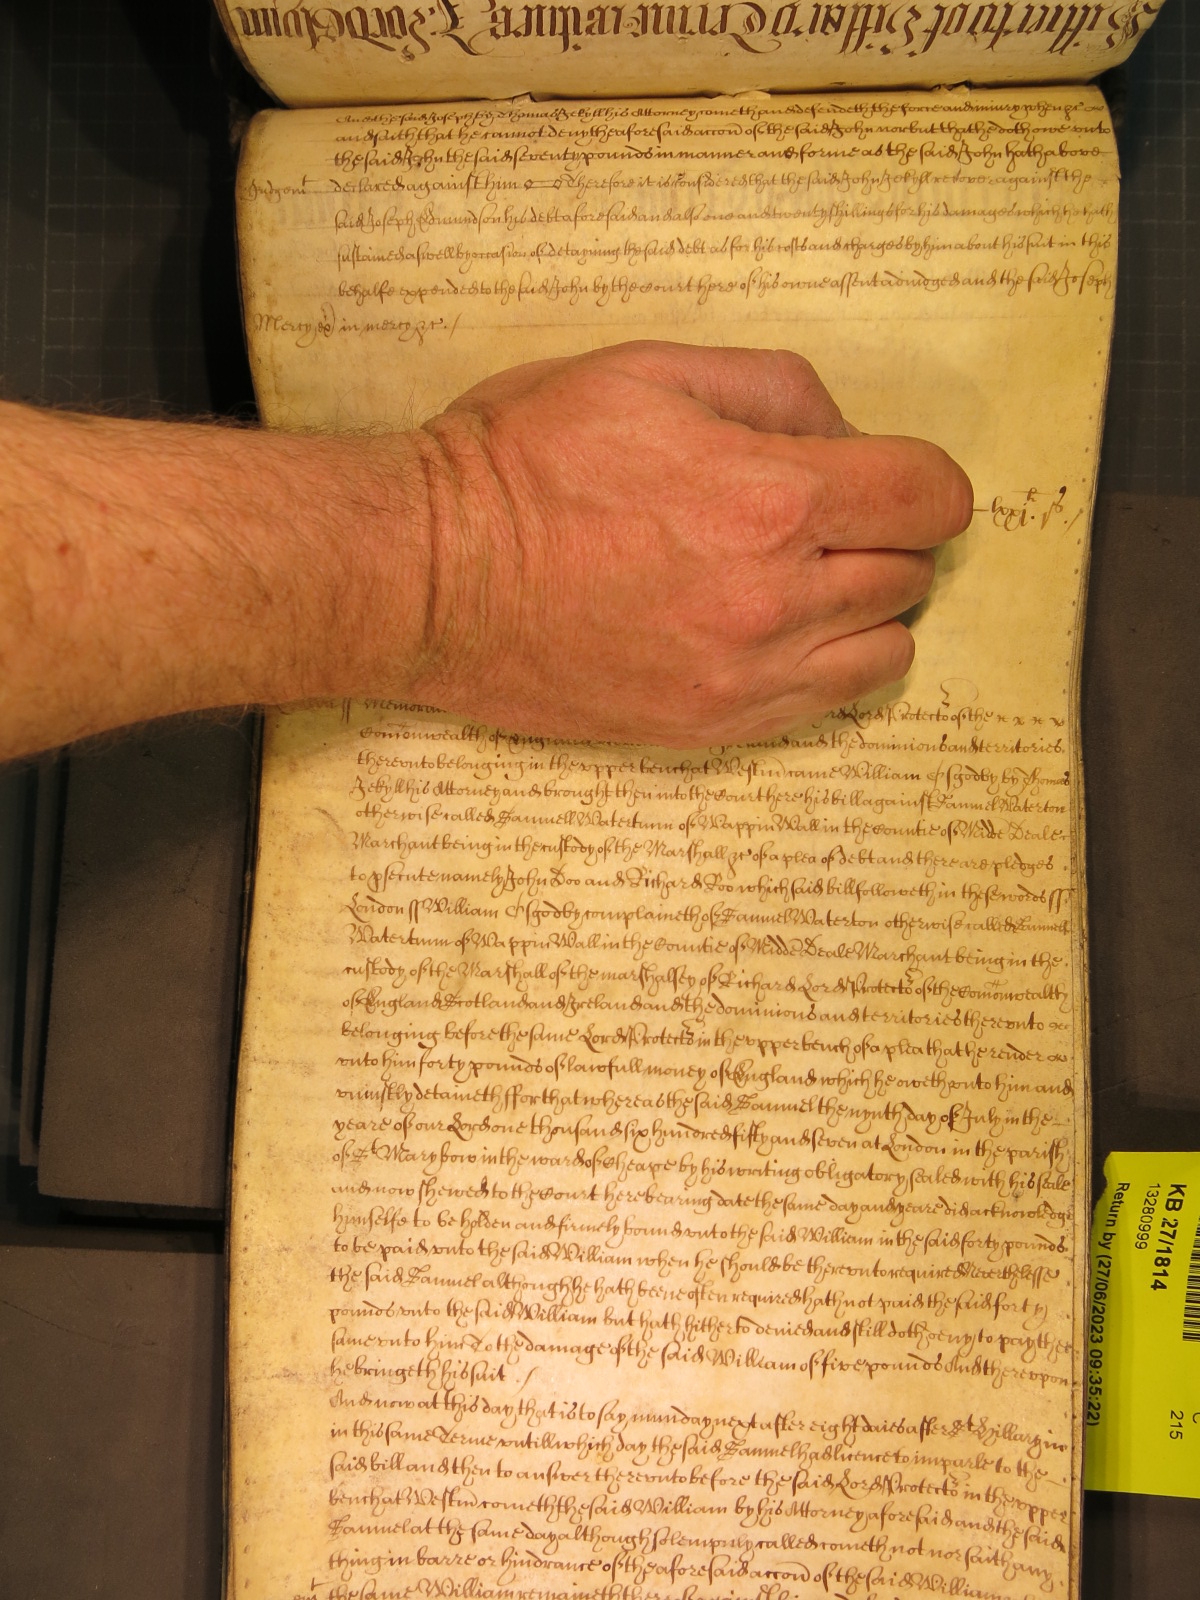 And the said Joseph by Thomas Jekyll his Attorney cometh and defendeth the force and iniury when &c
and saith that he cannot deny the aforesaid accon of the said John nor but that he doth owe vnto
the said John the said seventy pounds in manner and forme as the said John hath above
Judgmt declared against him Therefore it is Considered that the said John Jekyll recover against the
said Joseph Edmundson his debt aforesaid and also one and twenty shillings for his damages which he hath
sustained aswell by occasion of detayning the said debt as for his costs and charges by him about his suit in this
behalfe expended to the said John by the Court here of his owne assent adiudged and the said Joseph
Mercy in mercy &c. /
lxxi s. /
Lord Protector of the
Comonwealth of England and the dominions and territories
therevnto belonging in the vpper bench at Westm came William Osgodby by Thomas
Jekyll his Attorney and brought then into the Court here his bill against Samuel Waterton
otherwise called Samuell Watertum of Wappin Wall in the Countie of Midd Deale
Marchant being in the custody of the Marshall &c of a plea of debt and there are pledges
to psecute namely John Doo and Richard Roo which said bill followeth in these words ss
London ss William Osgodby complaineth of Samuel Waterton otherwise called Samuell
Watertum of Wappin Wall in the Countie of Midd Deale Marchant being in the
custody of the Marshall of the marshalsey of Richard Lord Protector of the Comonwealth
of England Scotland and Ireland and the dominions and territories therevnto
belonging before the same Lord Protector in the vpper bench of a plea that he render
vnto him forty pounds of lawfull money of England which he oweth vnto him and
vniustly detaineth ffor that whereas the said Samuel the nynth day of July in the
yeare of our Lord one thousand six hundred fifty and seven at London in the parish
of St Mary bow in the ward of Cheape by his writing obligatory sealed with his seale
and now shewed to the Court here bearing date the same day and yeare did acknowledge
himselfe to be holden and firmely bound vnto the said William in the said forty pounds
to be paid vnto the said William when he should be therevnto required Neverthelesse
the said Samuel although he hath beene often required hath not paid the said forty
pounds vnto the said William but hath hitherto denied and still doth deny to pay the
same vnto him To the damage of the said William of five pounds And therevpon
he bringeth his suit . /
And now at this day that is to say munday next after eight daies after St Hillary in
in this same Terme vntill which day the said Samuel had licence to imparle to the
said bill and then to answer therevnto before the said Lord Protector in the vpper
bench at Westm cometh the said William by his Attorney aforesaid and the said
Samuel at the same day although solempnly called cometh not nor saith any
thing in barre or hindrance of the aforesaid accon of the said William
the same William remaineth
KB 27/1814
13280999
Return by (27/06/2023 09:35:22)
215